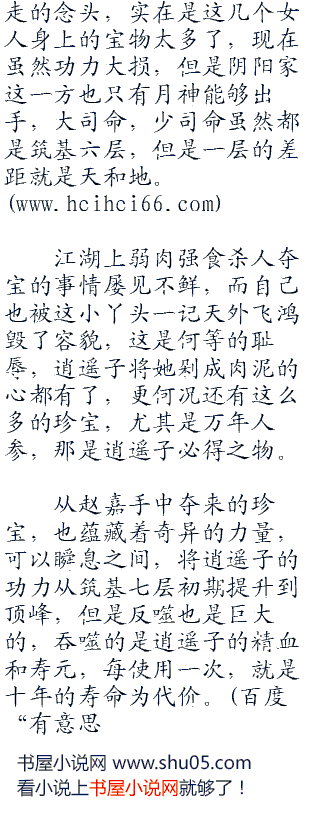 走的念头，实在是这几个女
人身上的宝物太多了，现在
虽然功力大损，但是阴阳家
这一方也只有月神能够出
手，大司命，少司命虽然都
是筑基六层，但是一层的差
距就是天和地。
(www.hcihci66.com)
江湖上弱肉强食杀人夺
宝的事情屡见不鲜，而自己
也被这小丫头一记天外飞鸿
毁了容貌，这是何等的耻
辱，逍遥子将她剁成肉泥的
心都有了，更何况还有这么
多的珍宝，尤其是万年人
参，那是逍遥子必得之物。
从赵嘉手中夺来的珍
宝，也蕴藏着奇异的力量，
可以瞬息之间，将逍遥子的
功力从筑基七层初期提升到
顶峰，但是反噬也是巨大
的，吞噬的是逍遥子的精血
和寿元，每使用一次，就是
十年的寿命为代价。(百度
“有意思
书屋小说网 www.shu05.com
看小说上书屋小说网就够了！